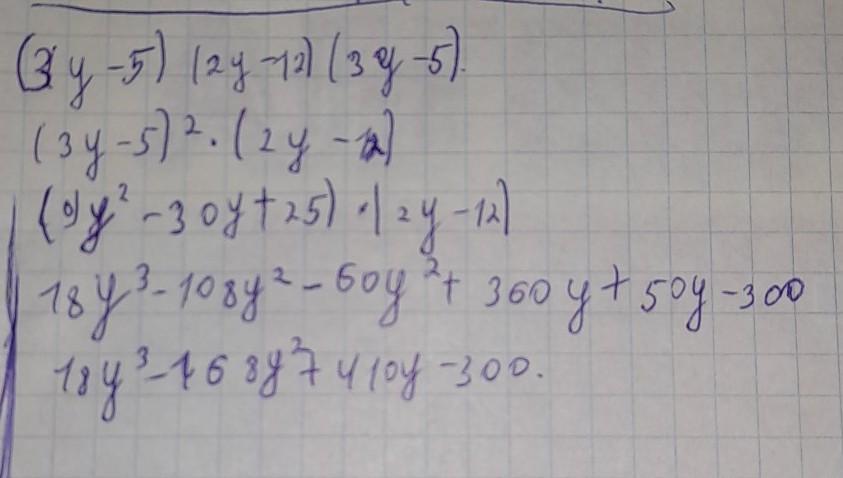 (3y-5) (2y-12) (3y-5).
(3y-5)²·(2y-12)
(9y²-30y+25)·(2y-12)
18y³-108y²-60y²+360y+50y-300
18y³-168y²+410y-300.